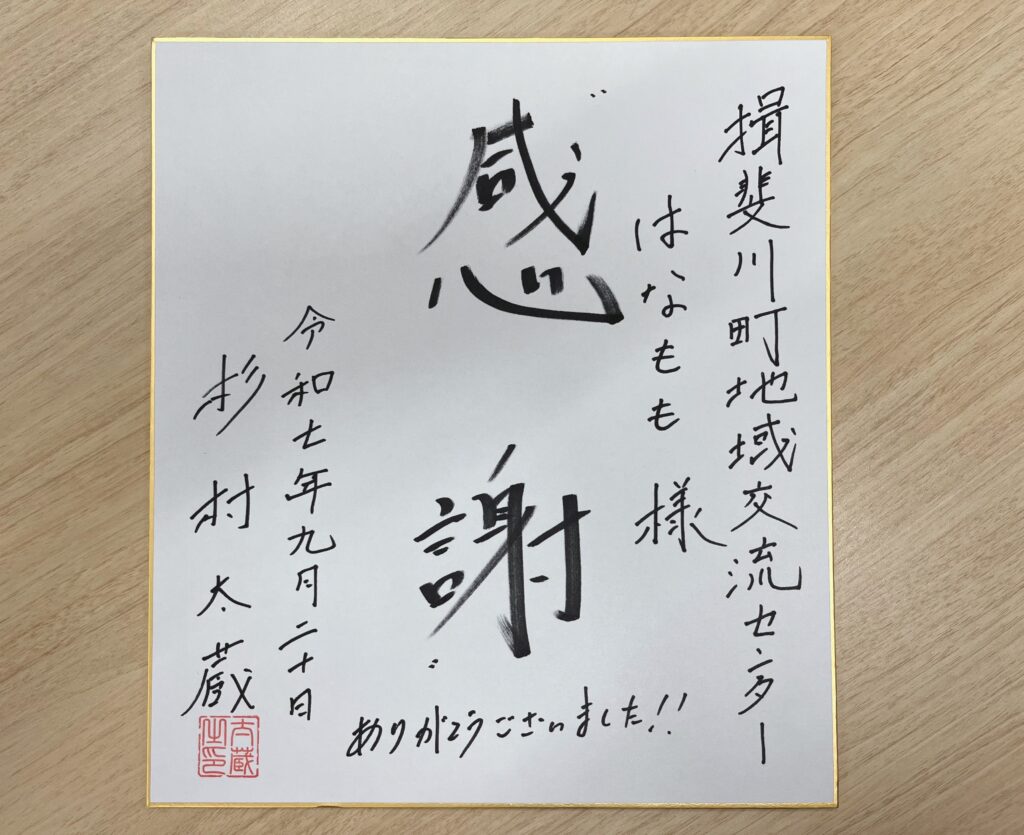 揖斐川町地域交流センター
はなもも 様
〝感謝〟
ありがとうございました!!
令和七年九月二十日
杉村太蔵
太蔵之印